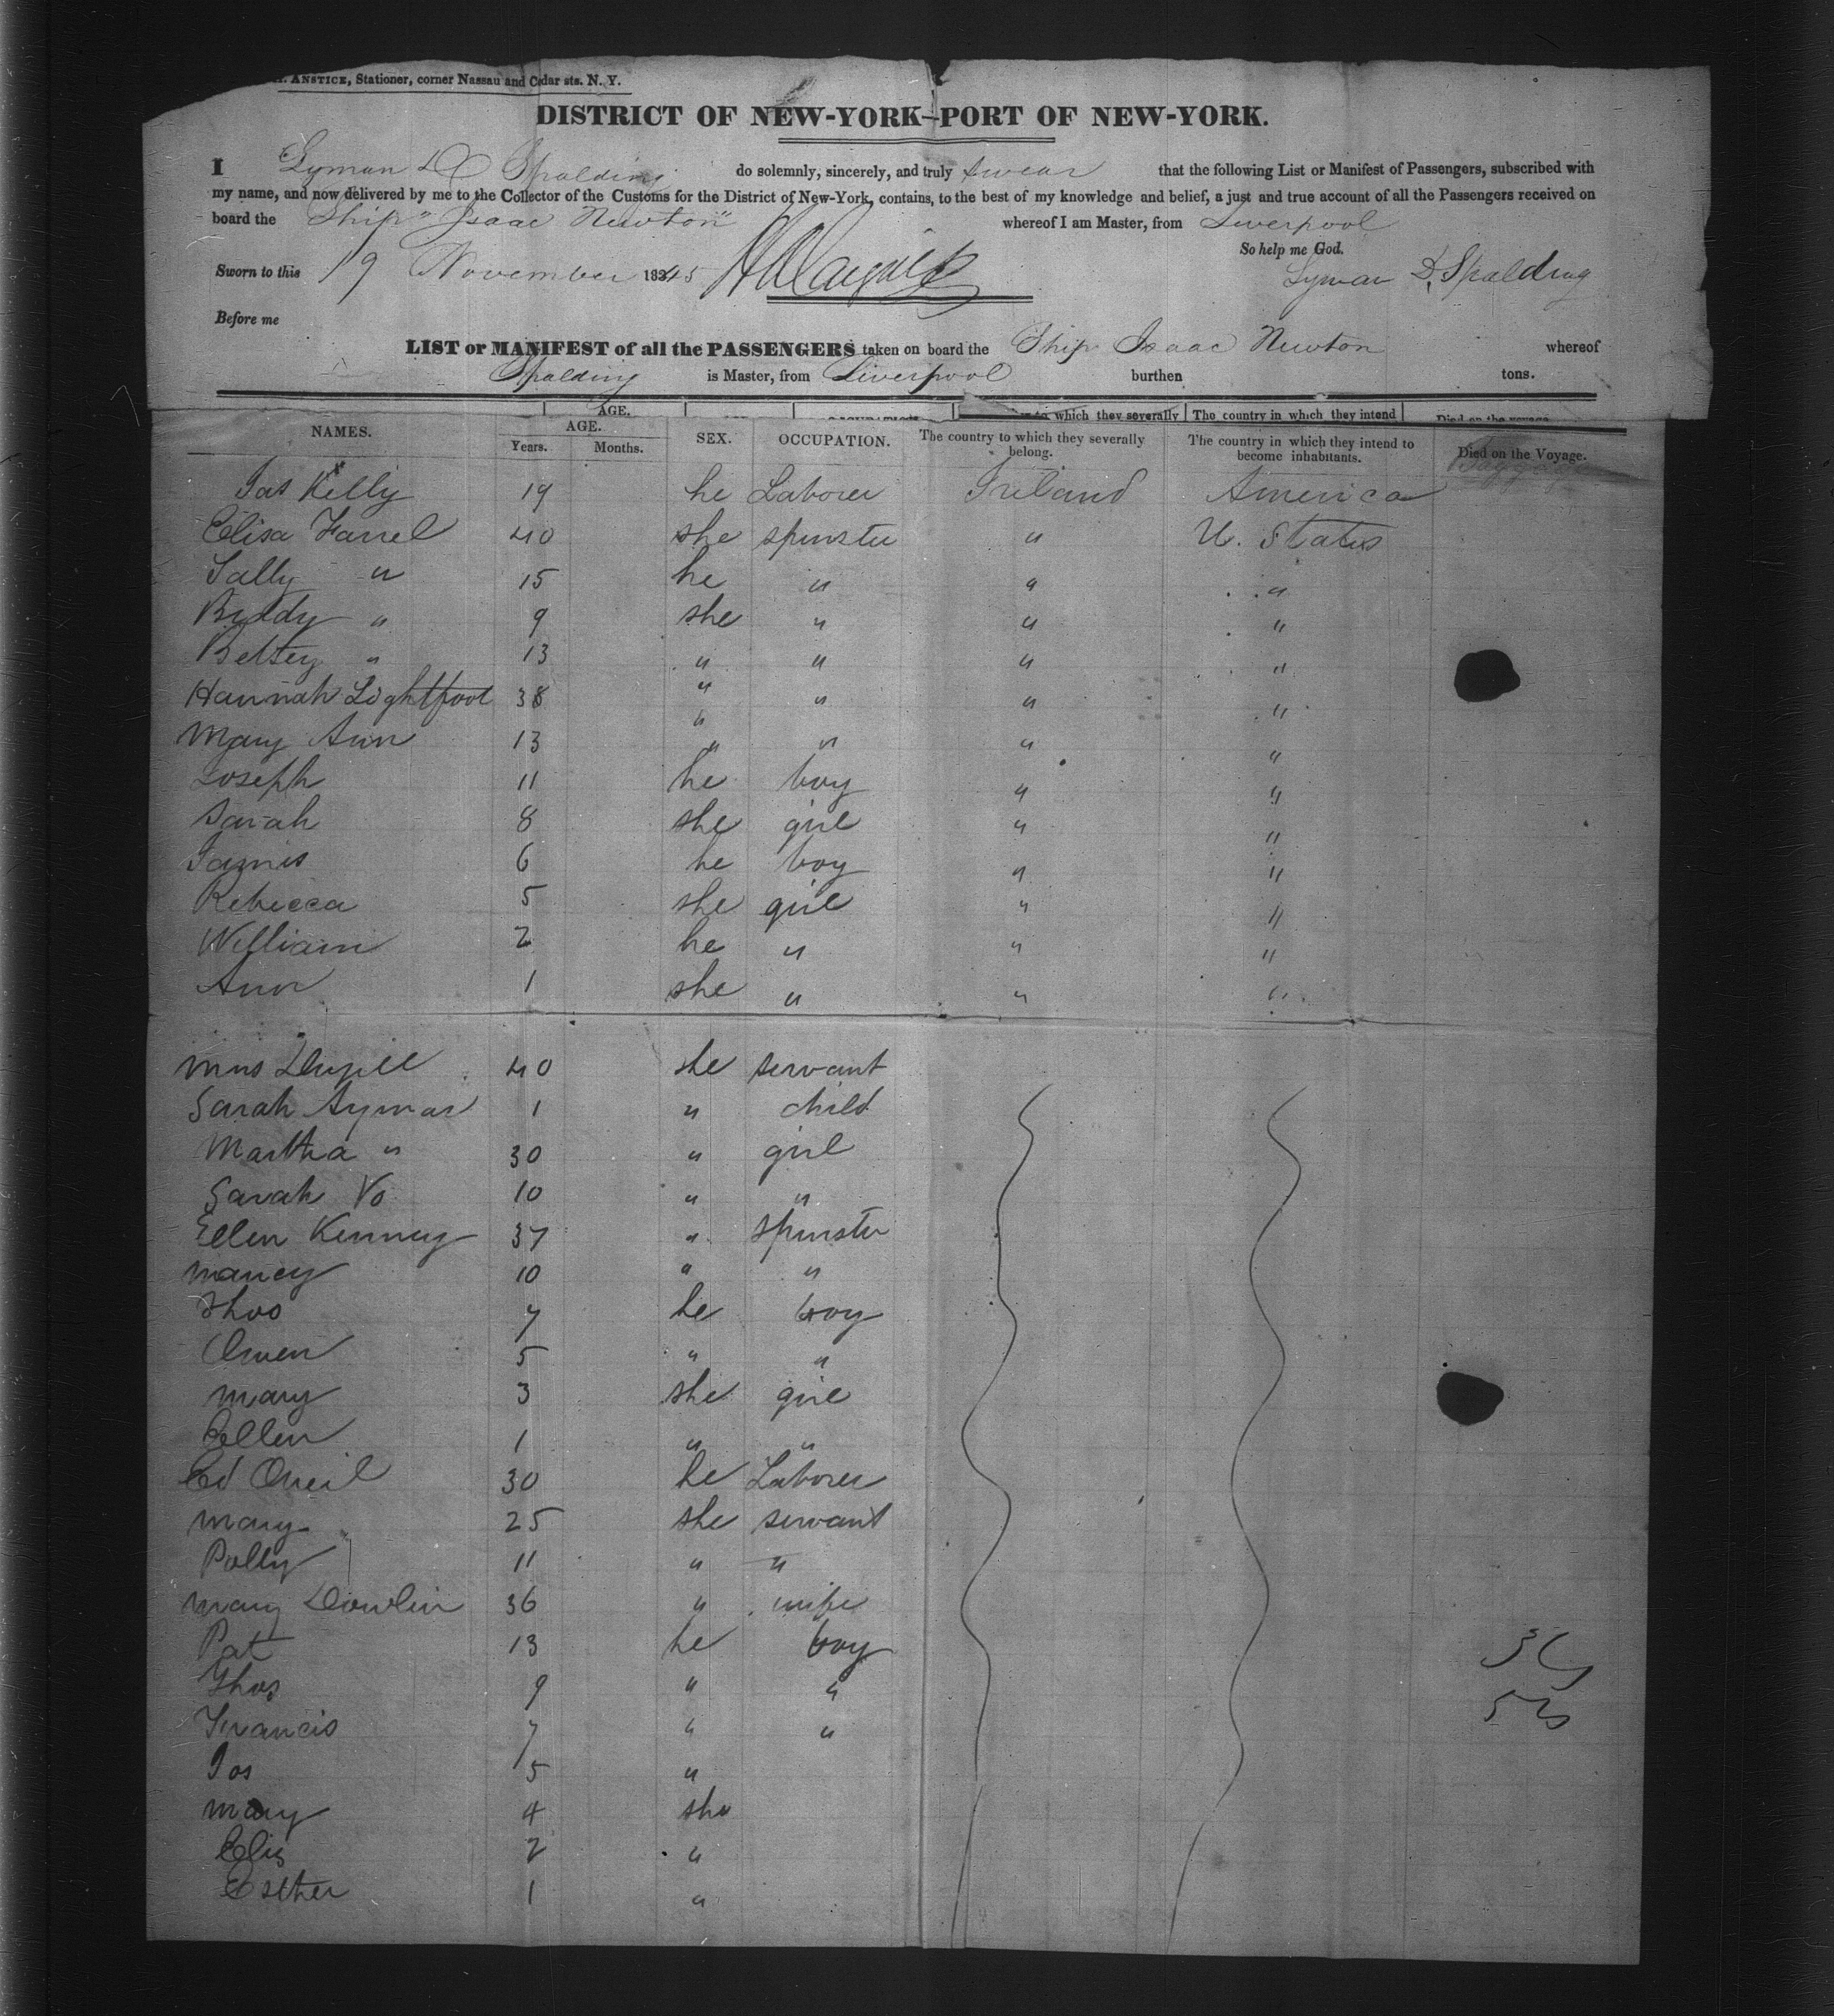 ANSTICE, Stationer, corner Nassau and Cedar sts. N. Y.
DISTRICT OF NEW-YORK—PORT OF NEW-YORK.
I Lyman D Spalding do solemnly, sincerely, and truly swear that the following List or Manifest of Passengers, subscribed with
my name, and now delivered by me to the Collector of the Customs for the District of New-York, contains, to the best of my knowledge and belief, a just and true account of all the Passengers received on
board the Ship "Isaac Newton" whereof I am Master, from Liverpool
So help me God.
Sworn to this 19 November 1845 Lyman D. Spalding
Before me
LIST or MANIFEST of all the PASSENGERS taken on board the Ship Isaac Newton whereof
Spalding is Master, from Liverpool burthen tons.
AGE. to which they severally The country in which they intend Died on the voyage
NAMES. AGE. Years. Months. SEX. OCCUPATION. The country to which they severally belong. The country in which they intend to become inhabitants. Died on the Voyage.
Jas Kelly 19 he Laborer Ireland America
Elisa Farrel 40 she spinster " U. States
Sally " 15 he " " "
Biddy " 9 she " " "
Betsey " 13 " " " "
Hannah Lightfoot 38 " " " "
Mary Ann 13 " " " "
Joseph 11 he boy " "
Sarah 8 she girl " "
James 6 he boy " "
Rebecca 5 she girl " "
William 2 he " " "
Ann 1 she " " "
Mrs 40 she servant
Sarah Aymar 1 " child
Martha " 30 " girl
Sarah 10 " "
Ellen Kenney 37 " spinster
Nancy 10 " "
Thos 7 he boy
Owen 5 " "
Mary 3 she girl
Ellen 1 " "
Ed Oneil 30 he Laborer
Mary 25 she servant
Polly 11 " "
Mary Dowlin 36 " wife
Pat 13 he boy
Thos 9 " "
Francis 7 " "
Jos 5 "
Mary 4 she
Elis 2 "
Esther 1 "